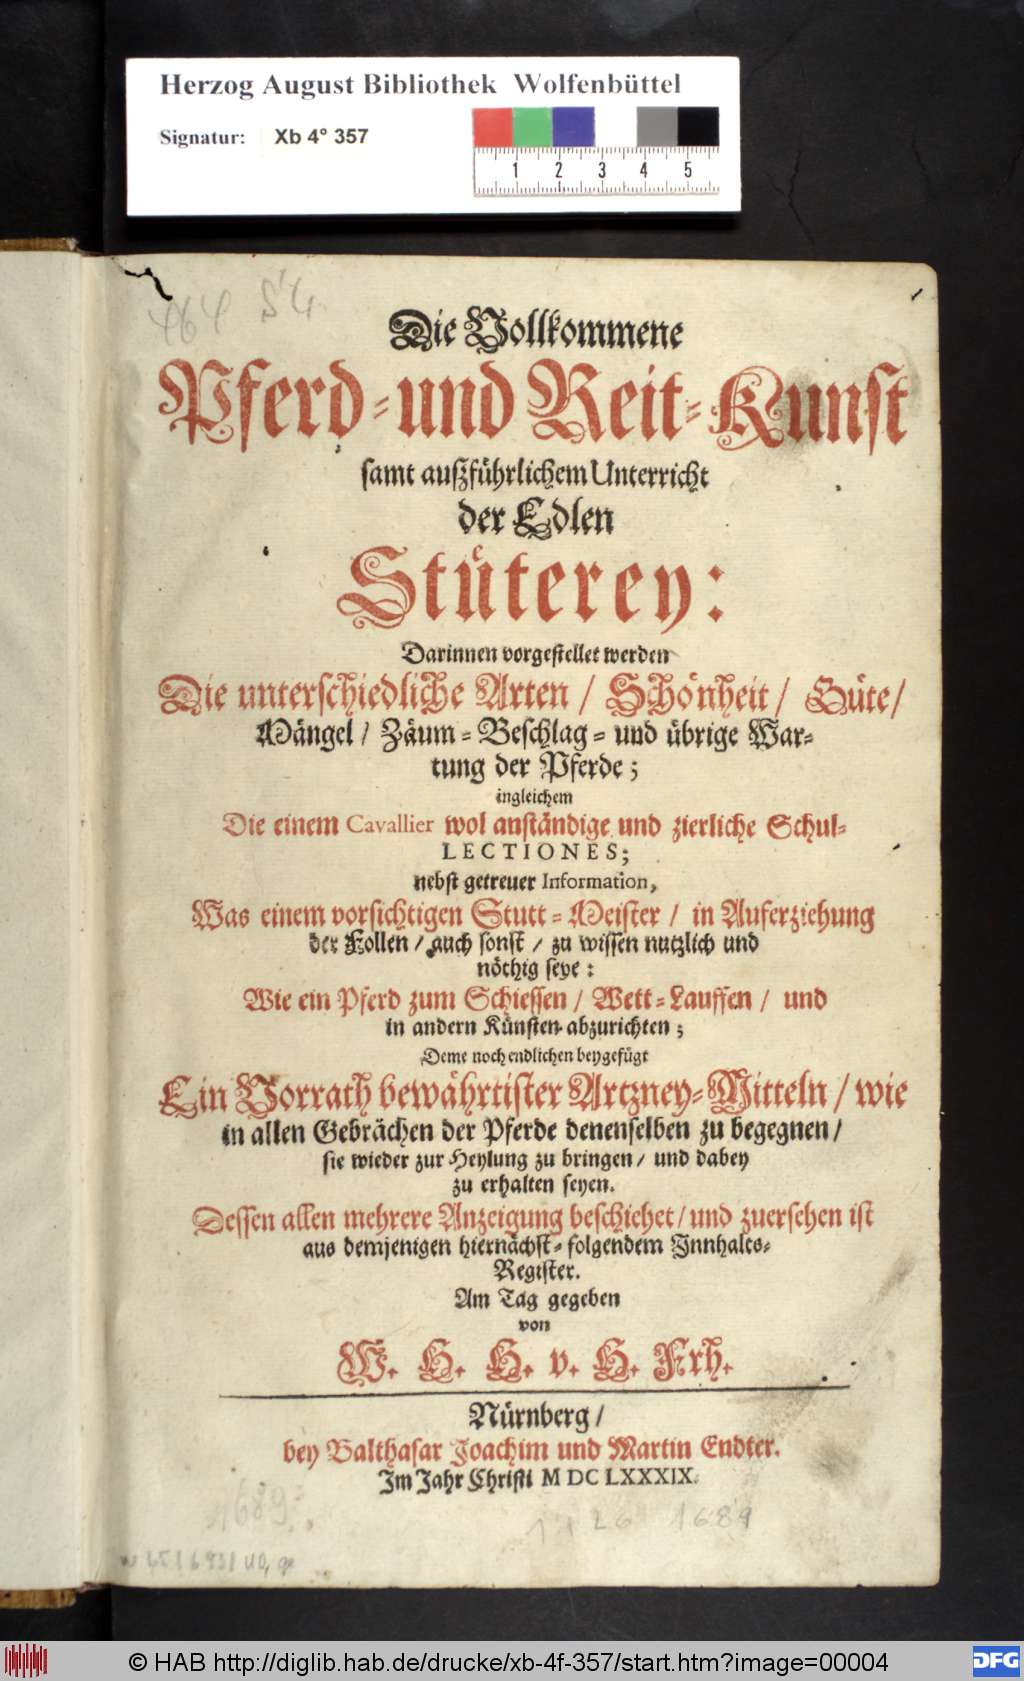 Herzog August Bibliothek Wolfenbüttel
Signatur: Xb 4° 357
1 2 3 4 5
464 54
Die Vollkommene
Pferd- und Reit-Kunst
samt außführlichem Unterricht
der Edlen
Stüterey:
Darinnen vorgestellet werden
Die unterschiedliche Arten / Schönheit / Güte /
Mängel / Zäum- Beschlag- und übrige War-
tung der Pferde;
ingleichem
Die einem Cavallier wol anständige und zierliche Schul-
LECTIONES;
nebst getreuer Information,
Was einem vorsichtigen Stutt-Meister / in Auferziehung
der Follen / auch sonst / zu wissen nutzlich und
nöthig seye:
Wie ein Pferd zum Schiessen / Wett-Lauffen / und
in andern Künsten abzurichten;
Deme noch endlichen beygefügt
Ein Vorrath bewährtister Artzney-Mitteln / wie
in allen Gebrächen der Pferde denenselben zu begegnen /
sie wieder zur Heylung zu bringen / und dabey
zu erhalten seyen.
Dessen allen mehrere Anzeigung beschiehet / und zuersehen ist
aus demjenigen hiernächst-folgendem Innhalts-
Register.
Am Tag gegeben
von
W. H. H. v. H. Frh.
Nürnberg /
bey Balthasar Joachim und Martin Endter.
Im Jahr Christi M DC LXXXIX.
1689
1126 1689
© HAB http://diglib.hab.de/drucke/xb-4f-357/start.htm?image=00004
DFG